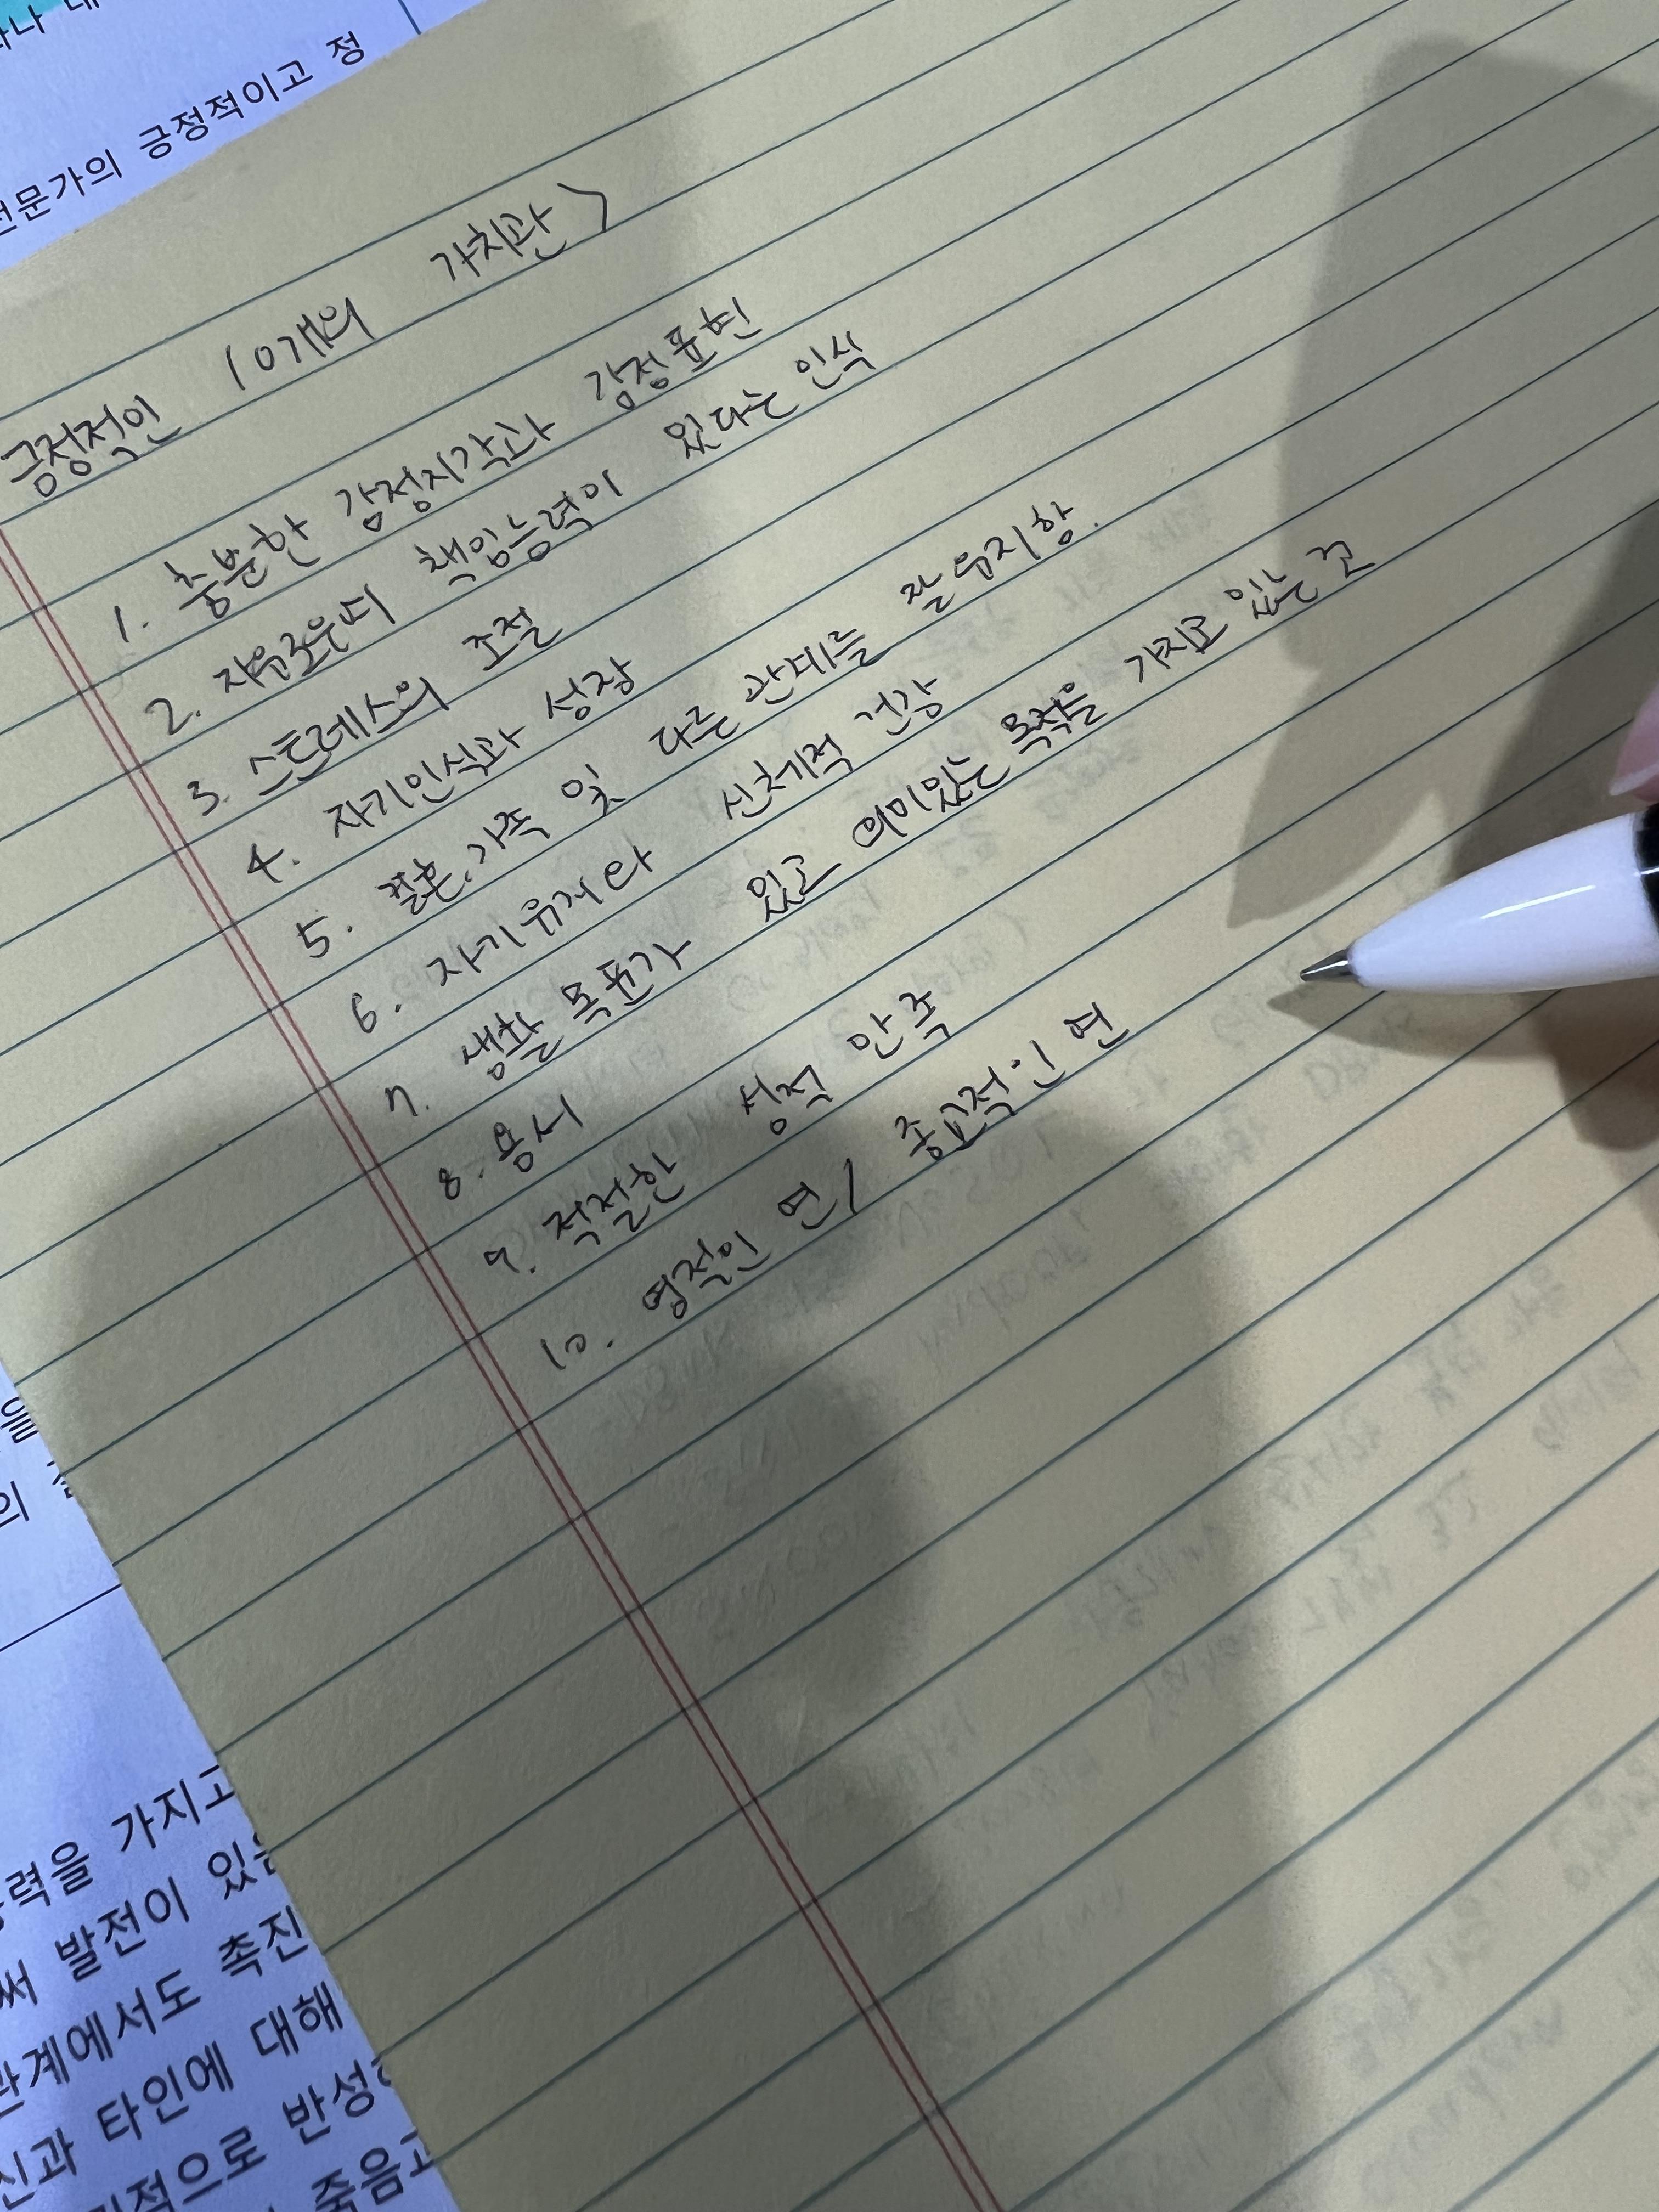 전문가의 긍정적이고 정
긍정적인 10개의 가치관 >
1. 충분한 감정지각과 감정표현
2. 자유로우며 책임능력이 있다는 인식
3. 스트레스의 조절
4. 자기인식과 성장
5. 결혼, 가족 및 다른 관계를 잘 유지함.
6. 자기유지와 신체적 건강
7. 생활 목표가 있고 의미있는 목적을 가지고 있는 것
8. 용서
9. 적절한 성적 만족
10. 영적인 면 / 종교적인 면
을
의
력을 가지고
써 발전이 있음
관계에서도 촉진
신과 타인에 대해
적으로 반성
죽음